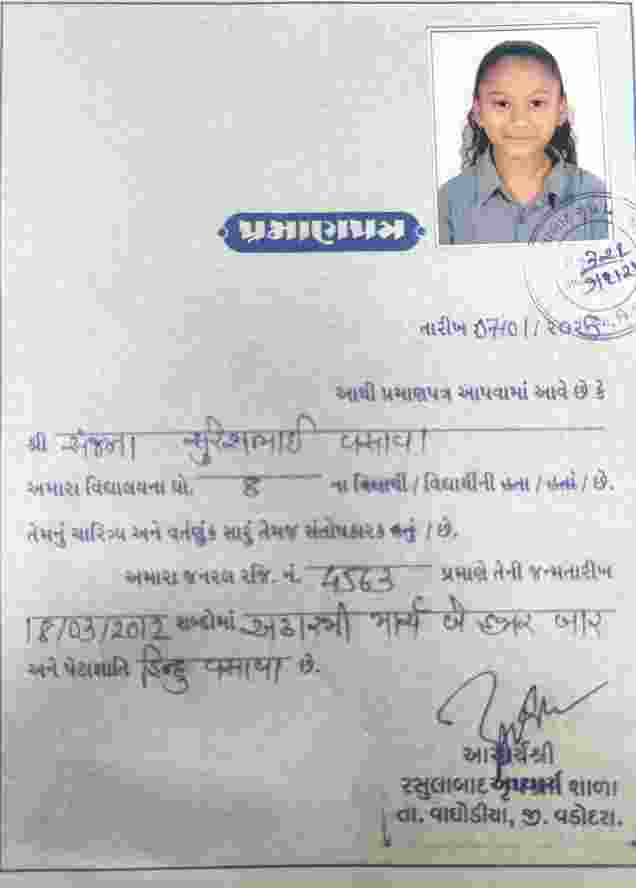 પ્રમાણપત્ર
તારીખ
આથી પ્રમાણપત્ર આપવામાં આવે છે કે
શ્રી સંજના સુરેશભાઈ વસાવા
અમારા વિદ્યાલયના ધો. 8 ના વિદ્યાર્થી / વિદ્યાર્થીની હતા / હતાં / છે.
તેમનું ચારિત્ર્ય અને વર્તણુંક સારું તેમજ સંતોષકારક હતું / છે.
અમારા જનરલ રજિ. નં. 4563 પ્રમાણે તેની જન્મતારીખ
18/03/2012 શબ્દોમાં અઢારમી માર્ચ બે હજાર બાર
અને પેટાજ્ઞાતિ હિન્દુ વસાવા છે.
આચાર્યશ્રી
રસુલાબાદ શાળા
તા. વાઘોડીયા, જી. વડોદરા.